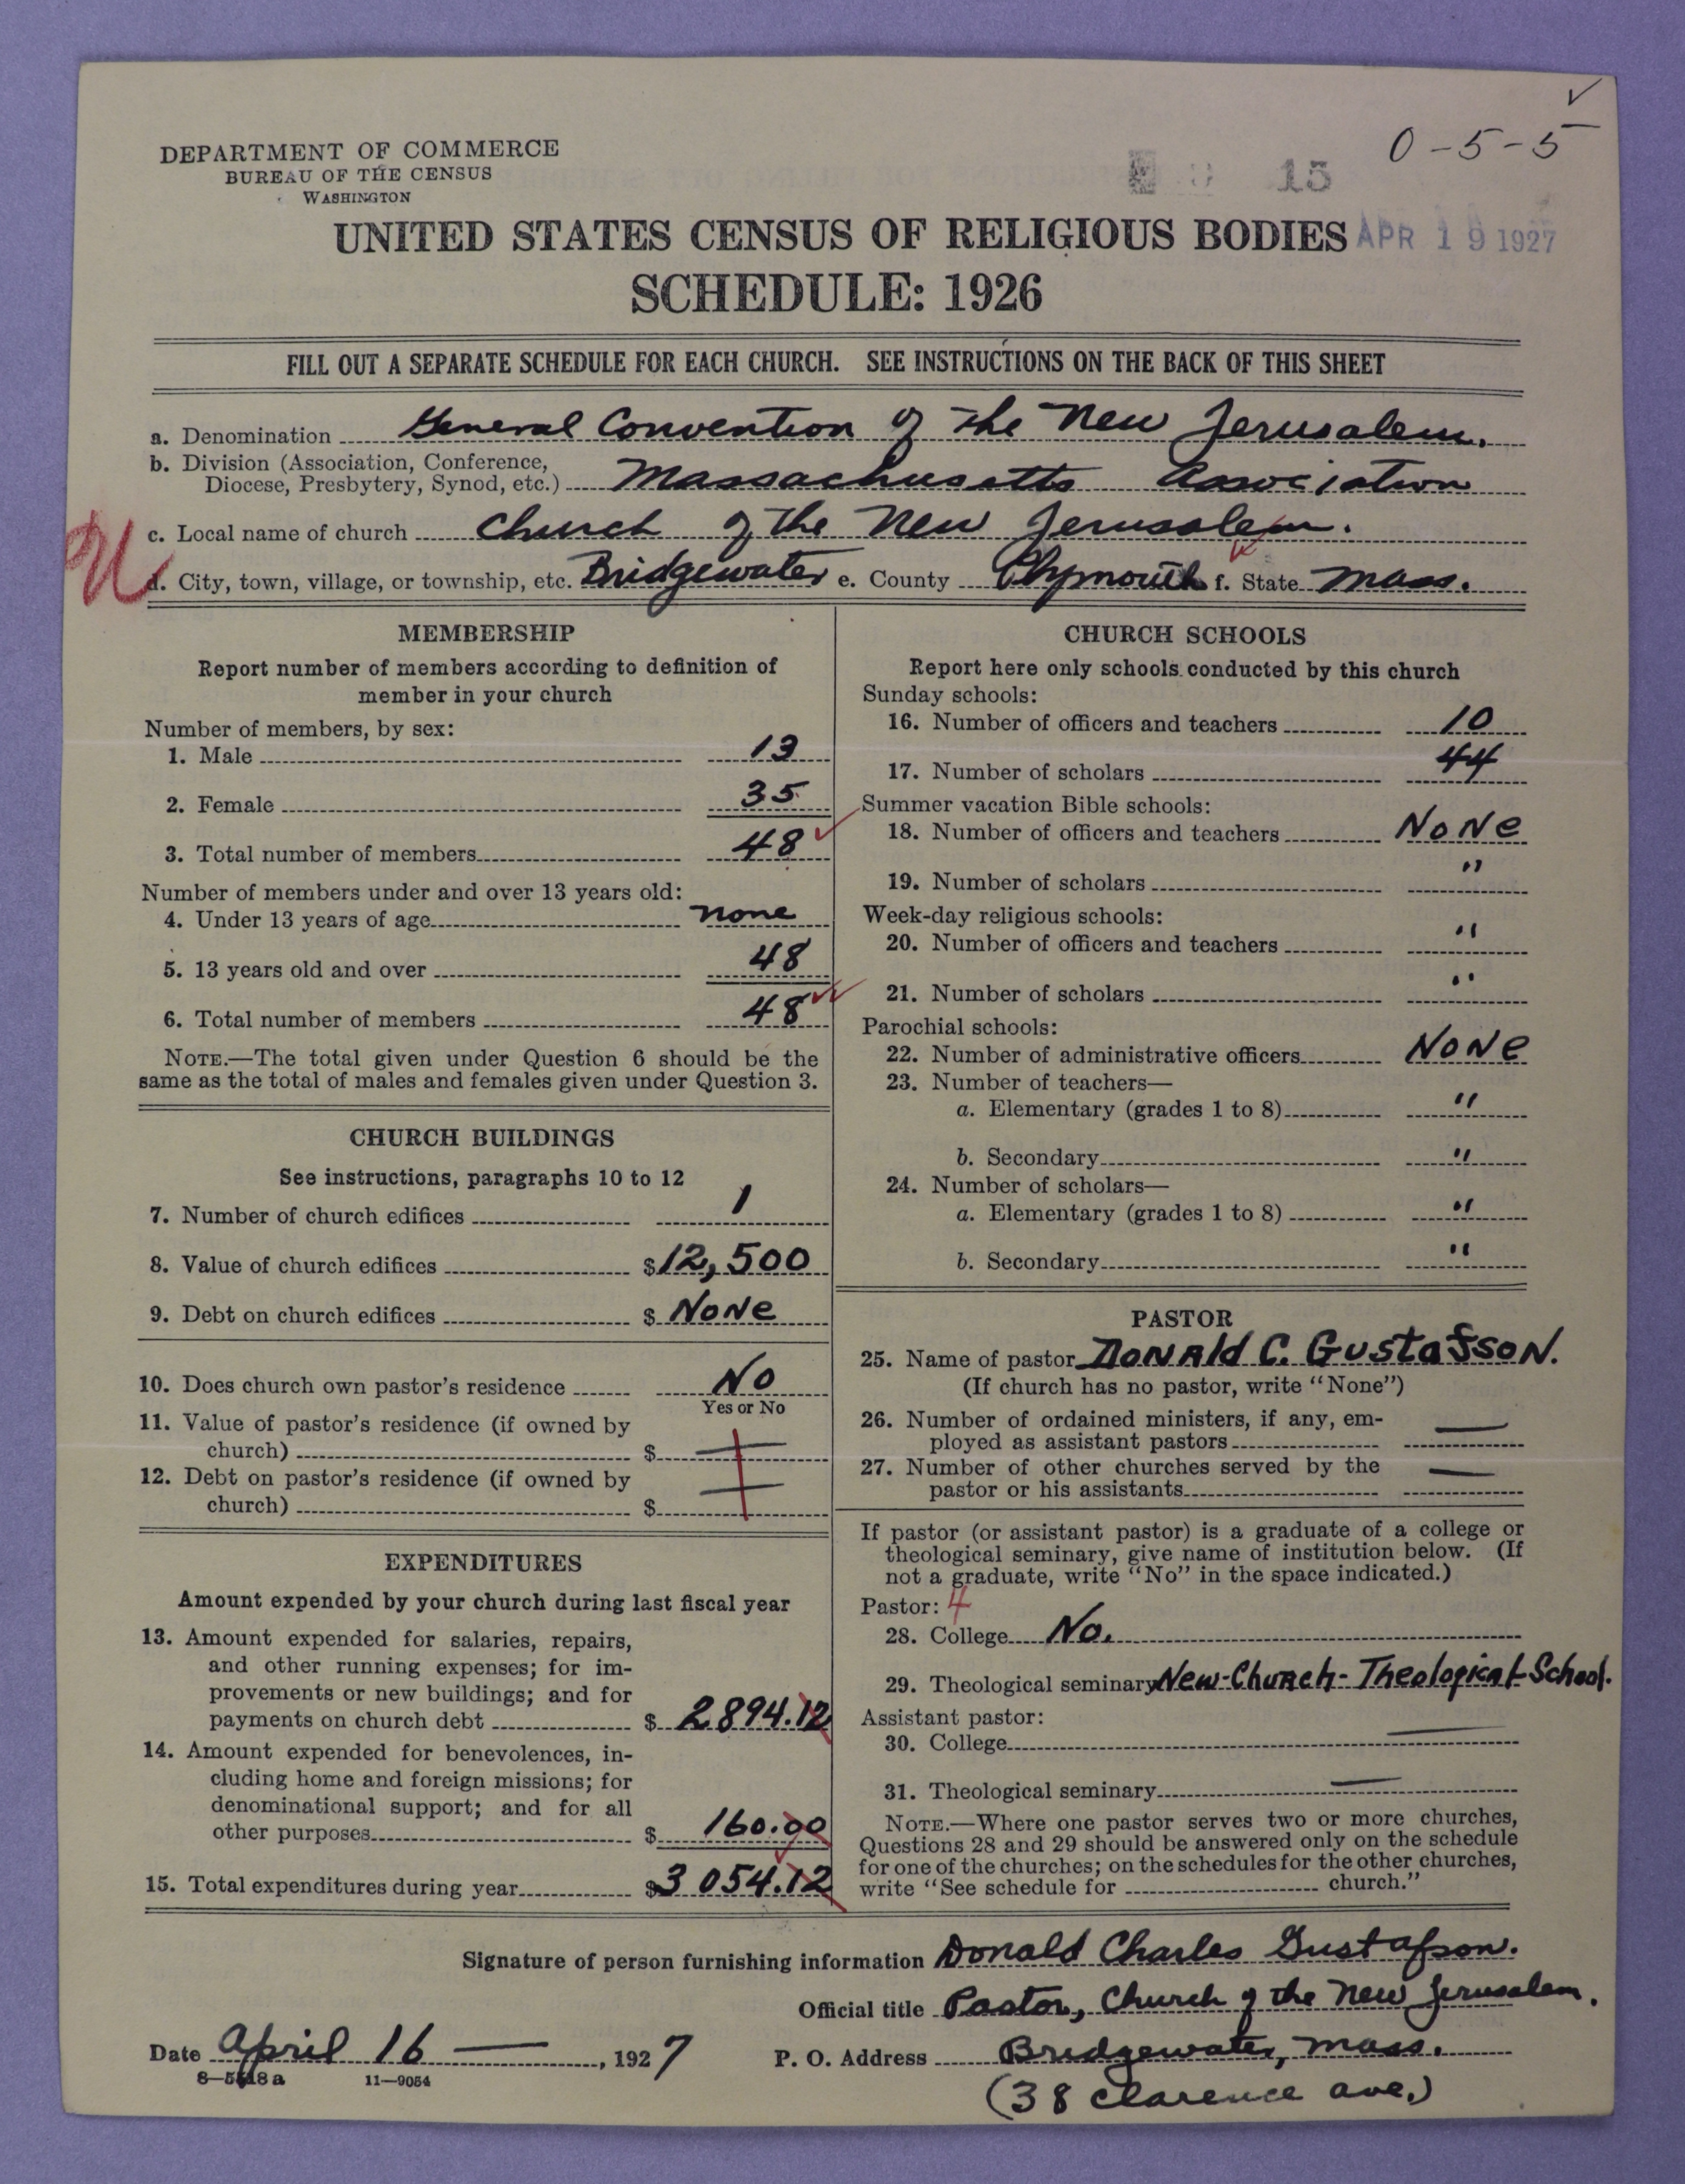 ✓
0-5-5
DEPARTMENT OF COMMERCE
BUREAU OF THE CENSUS
WASHINGTON
15
UNITED STATES CENSUS OF RELIGIOUS BODIES
APR 19 1927
SCHEDULE: 1926
FILL OUT A SEPARATE SCHEDULE FOR EACH CHURCH. SEE INSTRUCTIONS ON THE BACK OF THIS SHEET
a. Denomination General Convention of the New Jerusalem.
b. Division (Association, Conference,
Diocese, Presbytery, Synod, etc.) Massachusetts Association
c. Local name of church Church of the New Jerusalem.
d. City, town, village, or township, etc. Bridgewater e. County Plymouth f. State Mass.
MEMBERSHIP
Report number of members according to definition of
member in your church
Number of members, by sex:
1. Male 13
2. Female 35
3. Total number of members 48 ✓
Number of members under and over 13 years old:
4. Under 13 years of age none
5. 13 years old and over 48
6. Total number of members 48 ✓✓
NOTE.—The total given under Question 6 should be the
same as the total of males and females given under Question 3.
CHURCH BUILDINGS
See instructions, paragraphs 10 to 12
7. Number of church edifices 1
8. Value of church edifices $12,500
9. Debt on church edifices $ None
10. Does church own pastor's residence No
Yes or No
11. Value of pastor's residence (if owned by
church) $ —
12. Debt on pastor's residence (if owned by
church) $ —
EXPENDITURES
Amount expended by your church during last fiscal year
13. Amount expended for salaries, repairs,
and other running expenses; for im-
provements or new buildings; and for
payments on church debt $ 2894.12
14. Amount expended for benevolences, in-
cluding home and foreign missions; for
denominational support; and for all
other purposes $ 160.00
15. Total expenditures during year $3054.12
CHURCH SCHOOLS
Report here only schools conducted by this church
Sunday schools:
16. Number of officers and teachers 10
17. Number of scholars 44
Summer vacation Bible schools:
18. Number of officers and teachers None
19. Number of scholars "
Week-day religious schools:
20. Number of officers and teachers "
21. Number of scholars "
Parochial schools:
22. Number of administrative officers None
23. Number of teachers—
a. Elementary (grades 1 to 8) "
b. Secondary "
24. Number of scholars—
a. Elementary (grades 1 to 8) "
b. Secondary "
PASTOR
25. Name of pastor Donald C. Gustafson.
(If church has no pastor, write "None")
26. Number of ordained ministers, if any, em-
ployed as assistant pastors —
27. Number of other churches served by the
pastor or his assistants —
If pastor (or assistant pastor) is a graduate of a college or
theological seminary, give name of institution below. (If
not a graduate, write "No" in the space indicated.)
Pastor: 4
28. College No.
29. Theological seminary New-Church-Theological-School.
Assistant pastor:
30. College —
31. Theological seminary —
NOTE.—Where one pastor serves two or more churches,
Questions 28 and 29 should be answered only on the schedule
for one of the churches; on the schedules for the other churches,
write "See schedule for church."
Signature of person furnishing information Donald Charles Gustafson.
Official title Pastor, Church of the New Jerusalem.
Date April 16 —, 1927 P. O. Address Bridgewater, Mass.
11—9054
(38 Clarence ave.)